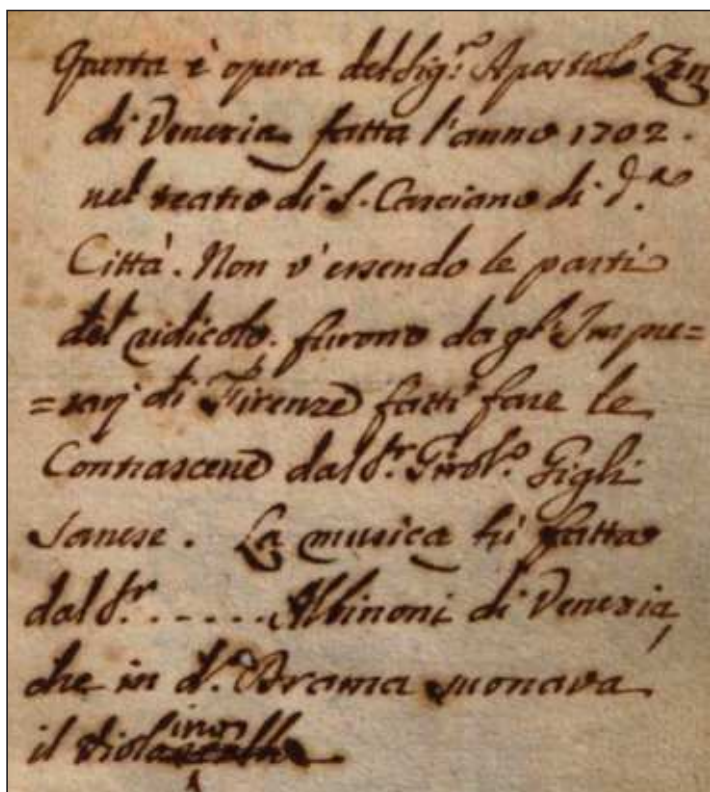 Questa è opera del Sig.ʳᵉ Apostolo Zen
di Venezia fatta l'anno 1702.
nel teatro di S. Casciano di d.ᵃ
Città. Non v'essendo le parti
del ridicolo. furono dagl'Impre=
=sarj di Firenze fatti fare le
Controscene dal S.ʳ Girol.º Gigli
Sanese. La musica fù fatta
dal S.ʳ ...... Albinoni di Venezia,
che in d.º Drama suonava
il violino